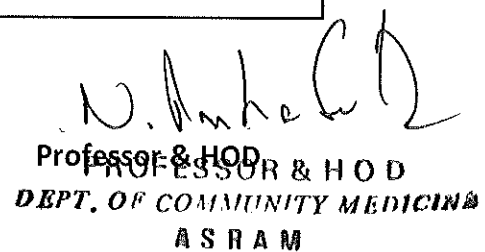 Professor & HOD
PROFESSOR & H O D
DEPT. OF COMMUNITY MEDICINE
A S R A M